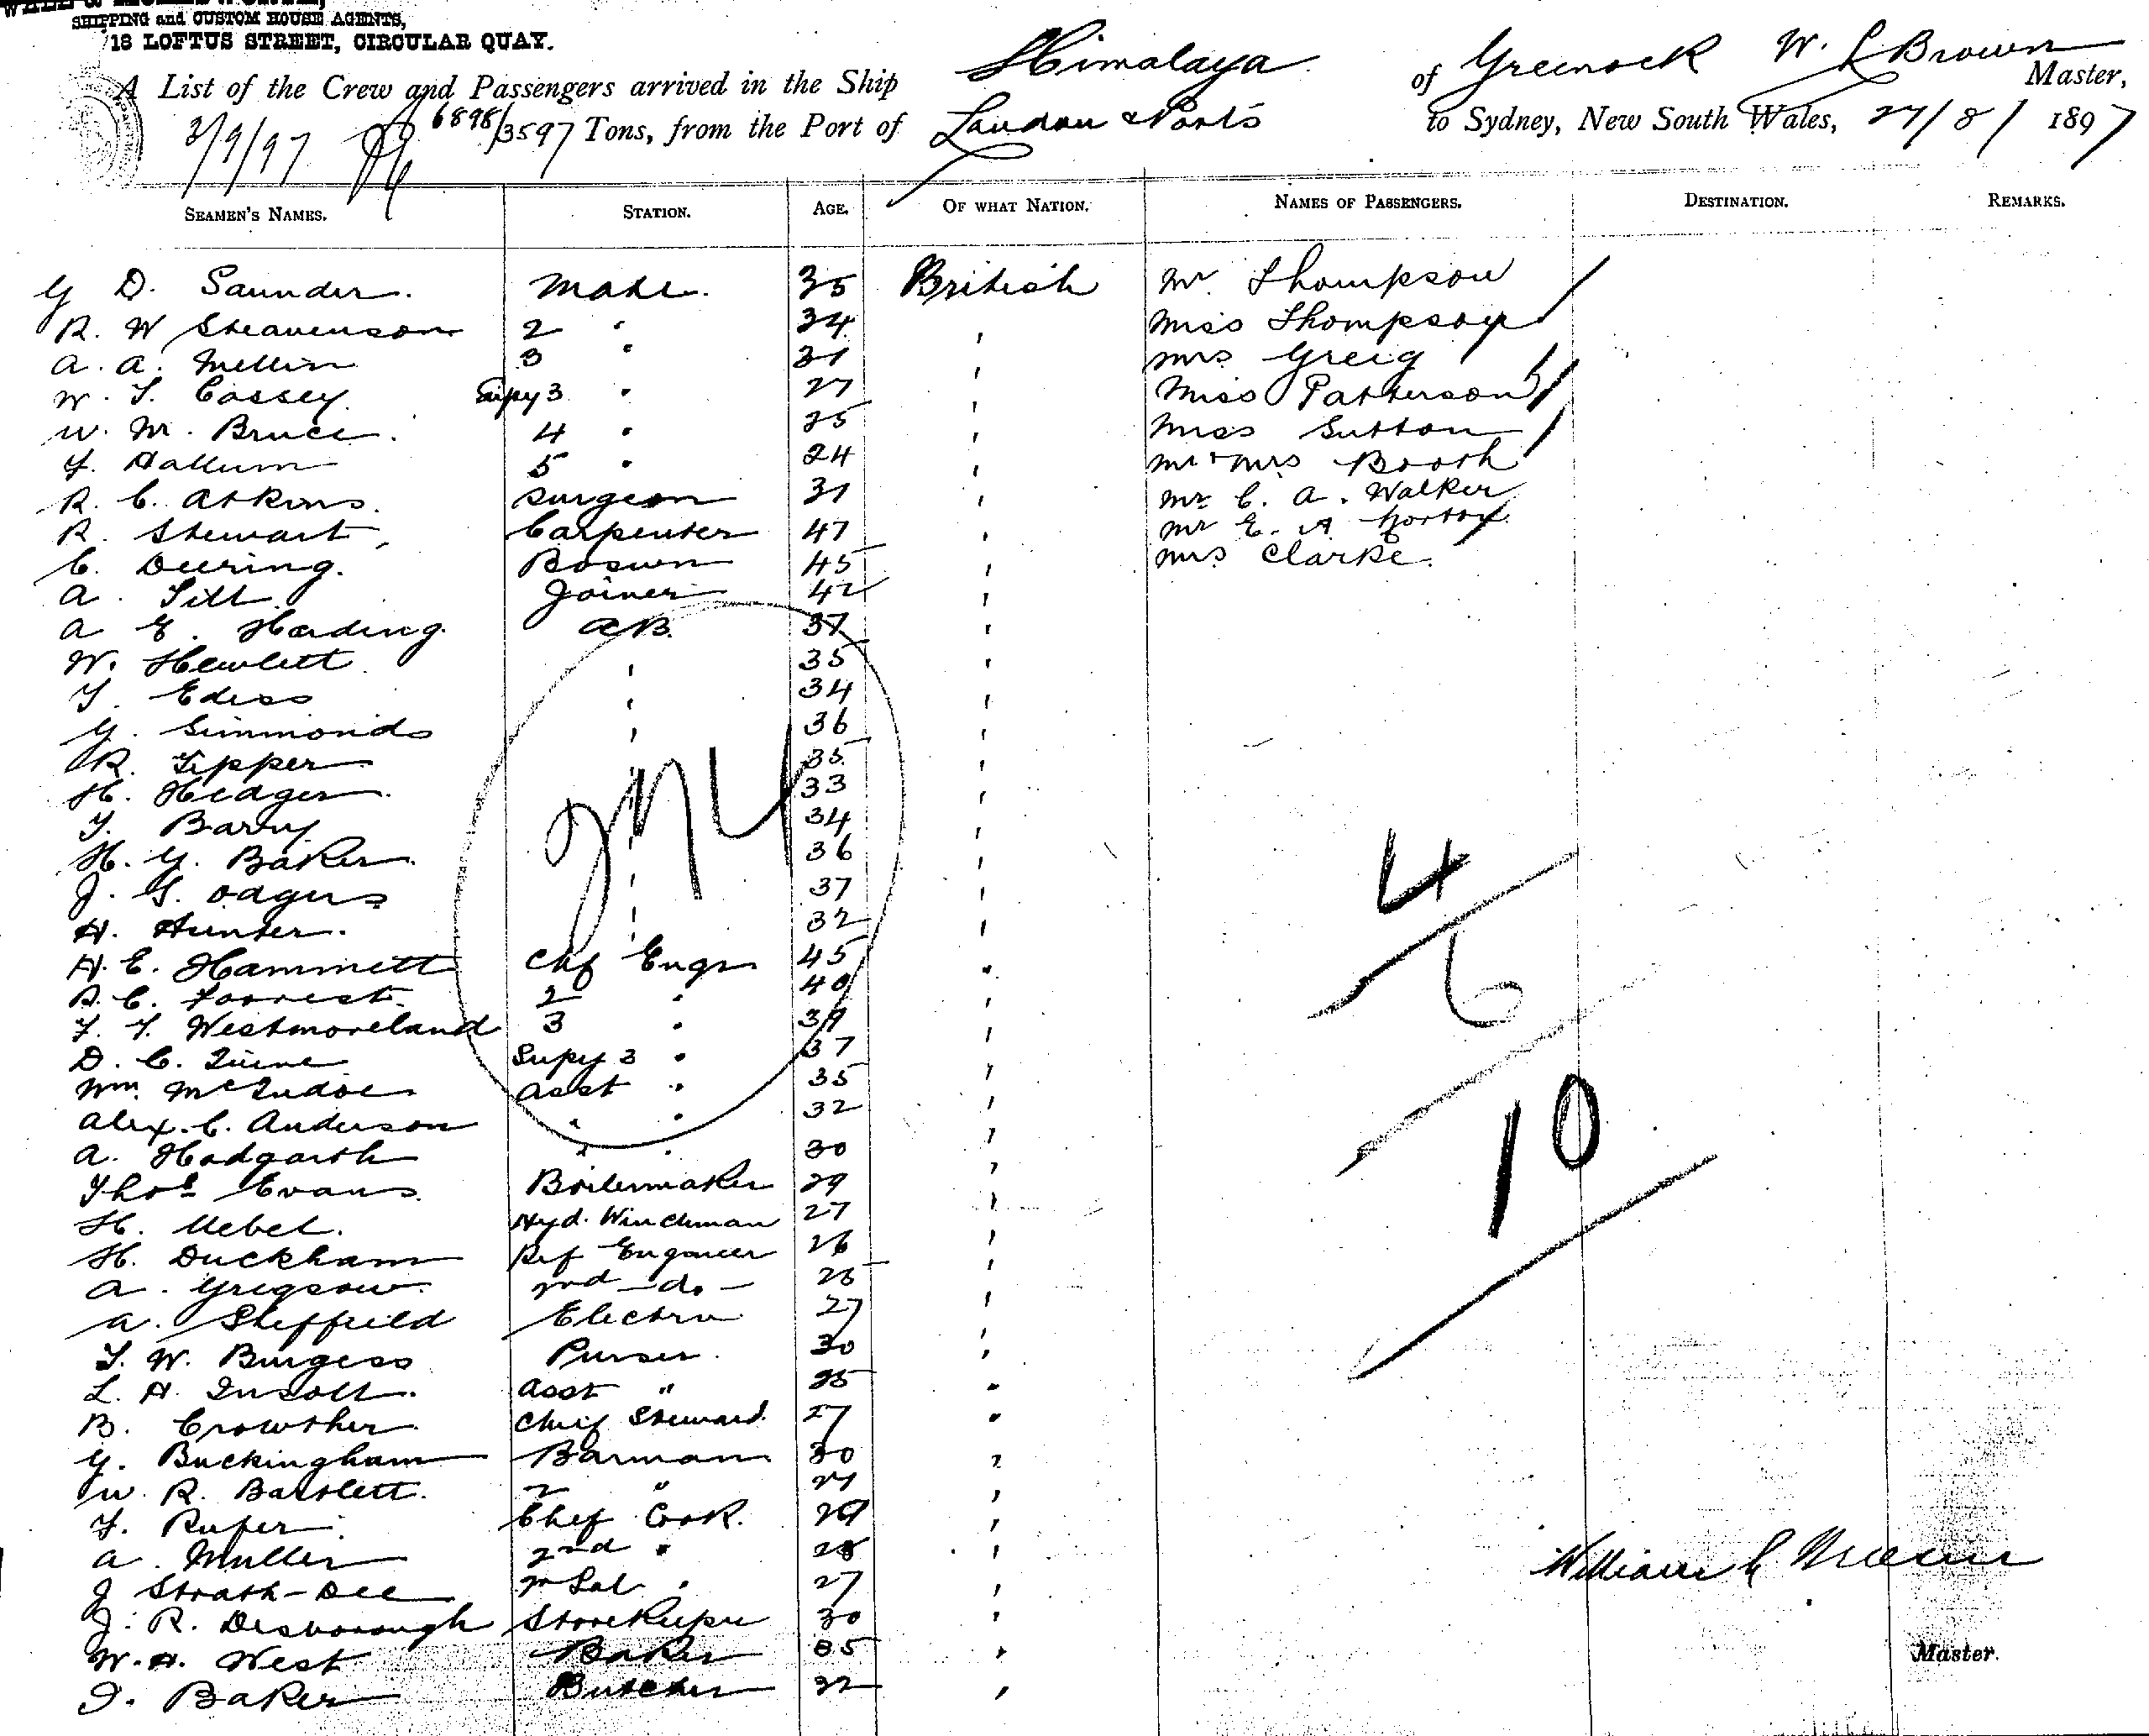 SHIPPING and CUSTOM HOUSE AGENTS,
18 LOFTUS STREET, CIRCULAR QUAY.
A List of the Crew and Passengers arrived in the Ship Himalaya of Greenock W. L Brown Master,
3/9/97 6898/3597 Tons, from the Port of London & Ports to Sydney, New South Wales, 27/8/1897
SEAMEN'S NAMES. STATION. AGE. OF WHAT NATION. NAMES OF PASSENGERS. DESTINATION. REMARKS.
G D. Saunder. Mate. 35 British Mr. Thompson
R. W Steavenson 2 " 34 " Miss Thompson
A. A. Mellin 3 " 31 " Mrs Greig
W. T. Cassey. Supy 3 " 27 " Miss Patterson
W. M. Bruce. 4 " 25 " Miss Sutton
F. Hallum 5 " 24 " Mr & Mrs Booth
R. C. Atkins. Surgeon 31 " Mr C. A. Walker
R. Stewart, Carpenter 47 " Mr E. A Norton
C. Deering. Bosun 45 " Mrs Clarke.
A. Till. Joiner 42 "
A E. Harding. AB. 37 "
W. Hewlett. " 35 "
T. Ediss " 34 "
G. Simmonds " 36 "
R. Tipper " 35 "
H. Hedger. " 33 "
T. Barry " 34 "
H. G. Baker. " 36 "
J. S. Odgers " 37 "
H. Hunter. " 32 "
274
H. E. Hammett Chf Engr 45 "
R. C. Forrest. 2 " 40 "
F. T. Westmoreland 3 " 39 "
D. C. Supy 3 " 37 "
Wm. McIndoe Asst " 35 "
Alex. C. Anderson " " 32 "
A. Hodgarth " " 30 "
Thos Evans. Boilermaker 29 "
H. Uebel. Hyd. Winchman 27 "
H. Duckham Ref Engineer 26 "
A. Gregson. 2nd - do - 25 "
A. Sheffield Electrn 27 "
T. W. Burgess Purser. 30 "
L. H. Insoll. Asst " 25 "
B. Crowther Chief Steward. 27 "
G. Buckingham Barman 30 "
W. R. Bartlett. 2 " 27 "
F. Rufer. Chef Cook. 29 "
A. Muller 2nd " 28 "
J Strath-Dee 2 Sal " 27 "
J. R. Desborough Storekeeper 30 "
W. H. West Baker 35 "
J. Baker Butcher 32 "
4
6
10
William L
Master.